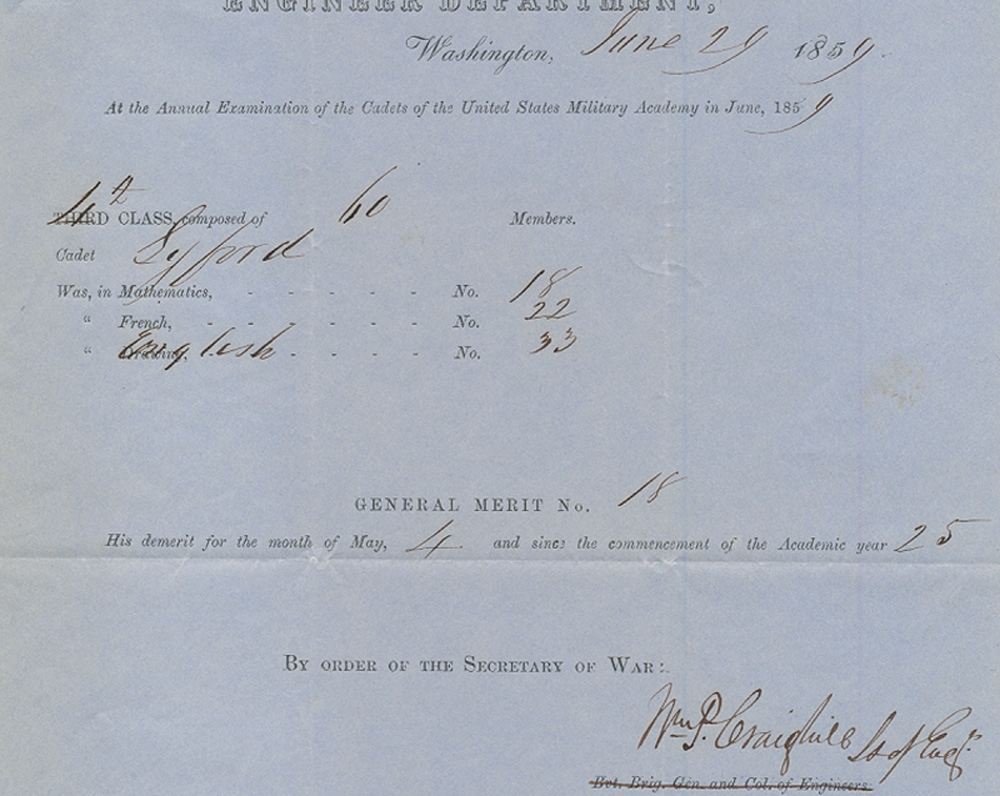 ENGINEER DEPARTMENT,
Washington, June 29 1859.
At the Annual Examination of the Cadets of the United States Military Academy in June, 1859
4th THIRD CLASS, composed of 60 Members.
Cadet Lyford
Was, in Mathematics, - - - - - No. 18
“ French, - - - - - - No. 22
“ Drawing, English - - - - No. 33
GENERAL MERIT No. 18
His demerit for the month of May, 4 and since the commencement of the Academic year 25
By order of the Secretary of War:
Wm. P. Craighill Lt of Eng.
Bvt. Brig. Gen. and Col. of Engineers.